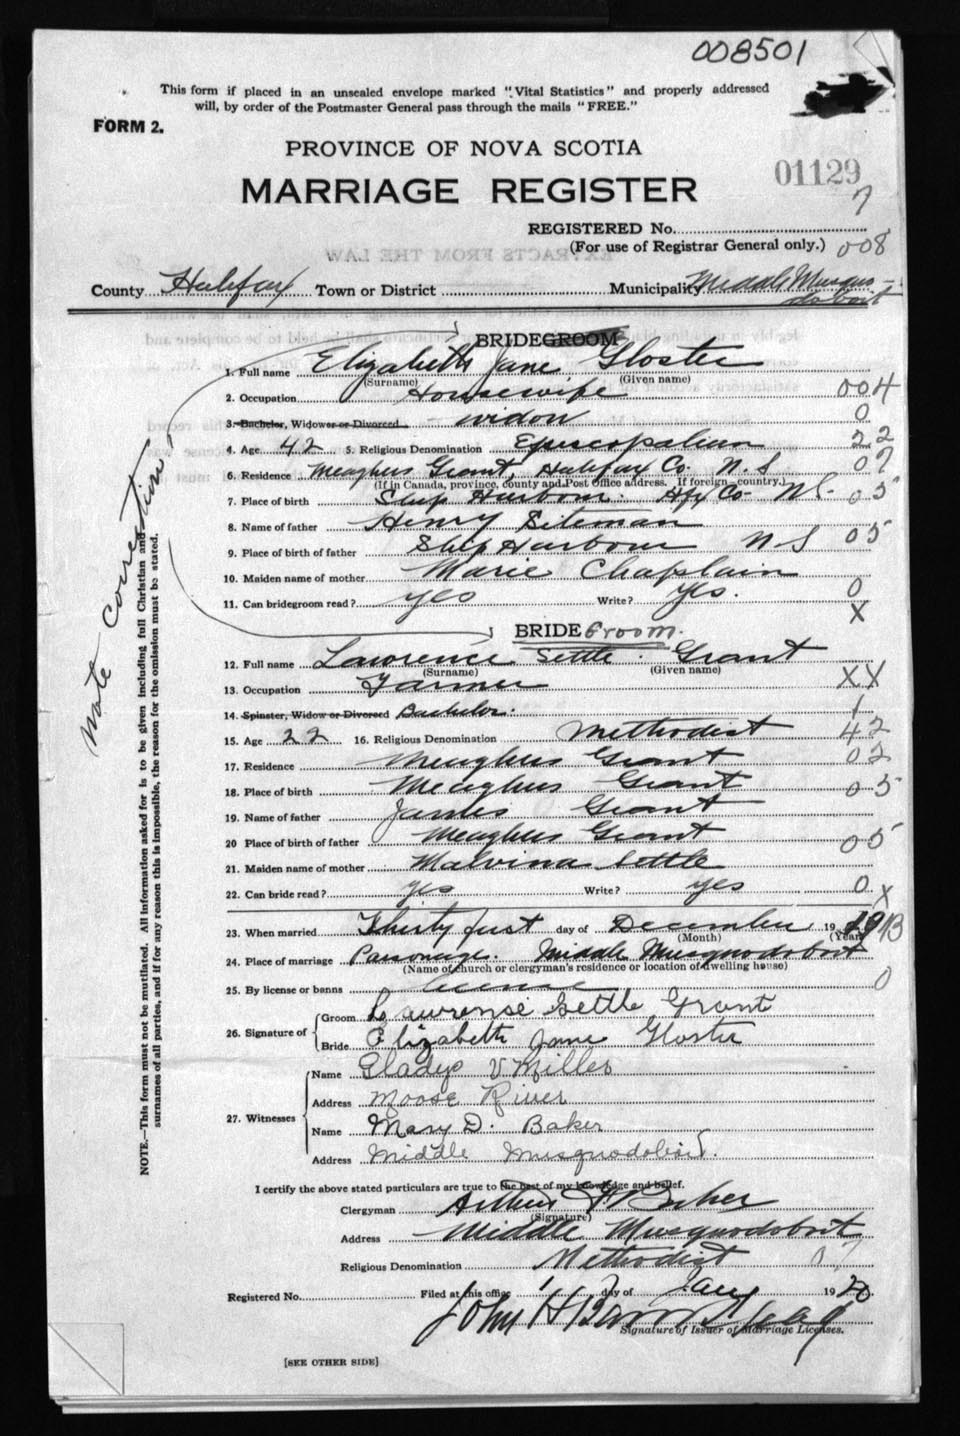 008501
This form if placed in an unsealed envelope marked "Vital Statistics" and properly addressed
will, by order of the Postmaster General pass through the mails "FREE."
FORM 2.
PROVINCE OF NOVA SCOTIA
01129
MARRIAGE REGISTER
7
REGISTERED No.
(For use of Registrar General only.) 008
County Halifax Town or District Municipality Middle Musquodoboit
BRIDEGROOM
1. Full name Elizabeth Jane Gloster
(Surname) (Given name)
2. Occupation Housewife 004
3. Bachelor, Widower or Divorced widow 0
4. Age 42 5. Religious Denomination Episcopalian 22
6. Residence Meaghers Grant, Halifax Co. N.S 07
(If in Canada, province, county and Post Office address. If foreign—country.)
7. Place of birth Ship Harbour. Hfx Co. NS. 05
8. Name of father Henry Siteman
9. Place of birth of father Ship Harbour NS 05
10. Maiden name of mother Marie Chaplain
11. Can bridegroom read? yes Write? yes. 0
X
BRIDE Groom.
12. Full name Lawrence Settle Grant
(Surname) (Given name)
13. Occupation Farmer XX
14. Spinster, Widow or Divorced Bachelor. 1
15. Age 22 16. Religious Denomination Methodist 42
17. Residence Meaghers Grant 02
18. Place of birth Meaghers Grant 05
19. Name of father James Grant
20 Place of birth of father Meaghers Grant 05
21. Maiden name of mother Malvina Settle
22. Can bride read? yes Write? yes 0 X
23. When married Thirty first day of December 1919 B
(Month) (Year)
24. Place of marriage Parsonage. Middle Musquodoboit
(Name of church or clergyman's residence or location of dwelling house)
25. By license or banns license 0
26. Signature of Groom Lawrence Settle Grant
Bride Elizabeth Jane Gloster
27. Witnesses Name Gladys V Miller
Address Moose River
Name Mary D. Baker
Address Middle Musquodoboit.
I certify the above stated particulars are true to the best of my knowledge and belief.
Clergyman Arthur
(Signature)
Address Middle Musquodoboit
Religious Denomination Methodist 07
Registered No. Filed at this office 1 day of Jany 1920
John H
Signature of Issuer of Marriage Licenses.
[SEE OTHER SIDE]
Note correction
NOTE.—This form must not be mutilated. All information asked for is to be given including full Christian and
surnames of all parties, and if for any reason this is impossible, the reason for the omission must be stated.